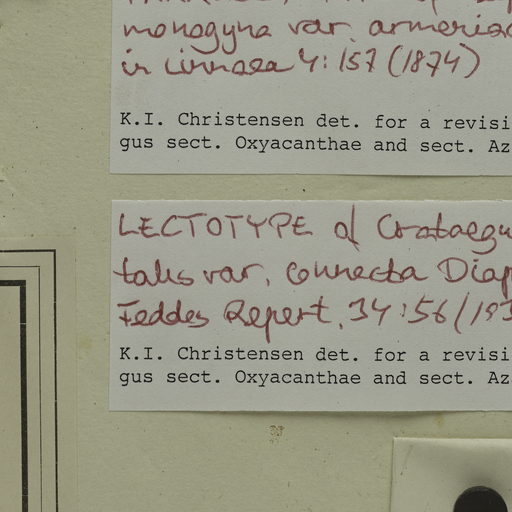 monogyna var. armeriac
in Linnaea 4:157 (1874)
K.I. Christensen det. for a revisi
gus sect. Oxyacanthae and sect. Az
LECTOTYPE of Crataegu
talis var. connecta Diap
Feddes Repert. 34:56 (193
K.I. Christensen det. for a revisi
gus sect. Oxyacanthae and sect. Az